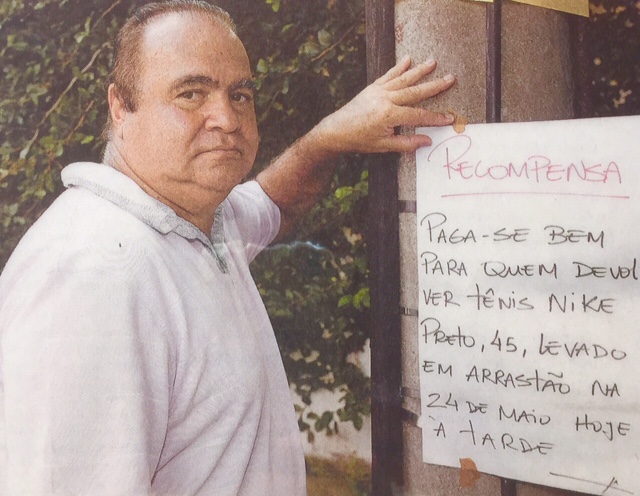 RECOMPENSA
PAGA-SE BEM
PARA QUEM DEVOL
VER TÊNIS NIKE
PRETO, 45, LEVADO
EM ARRASTÃO NA
24 DE MAIO HOJE
À TARDE